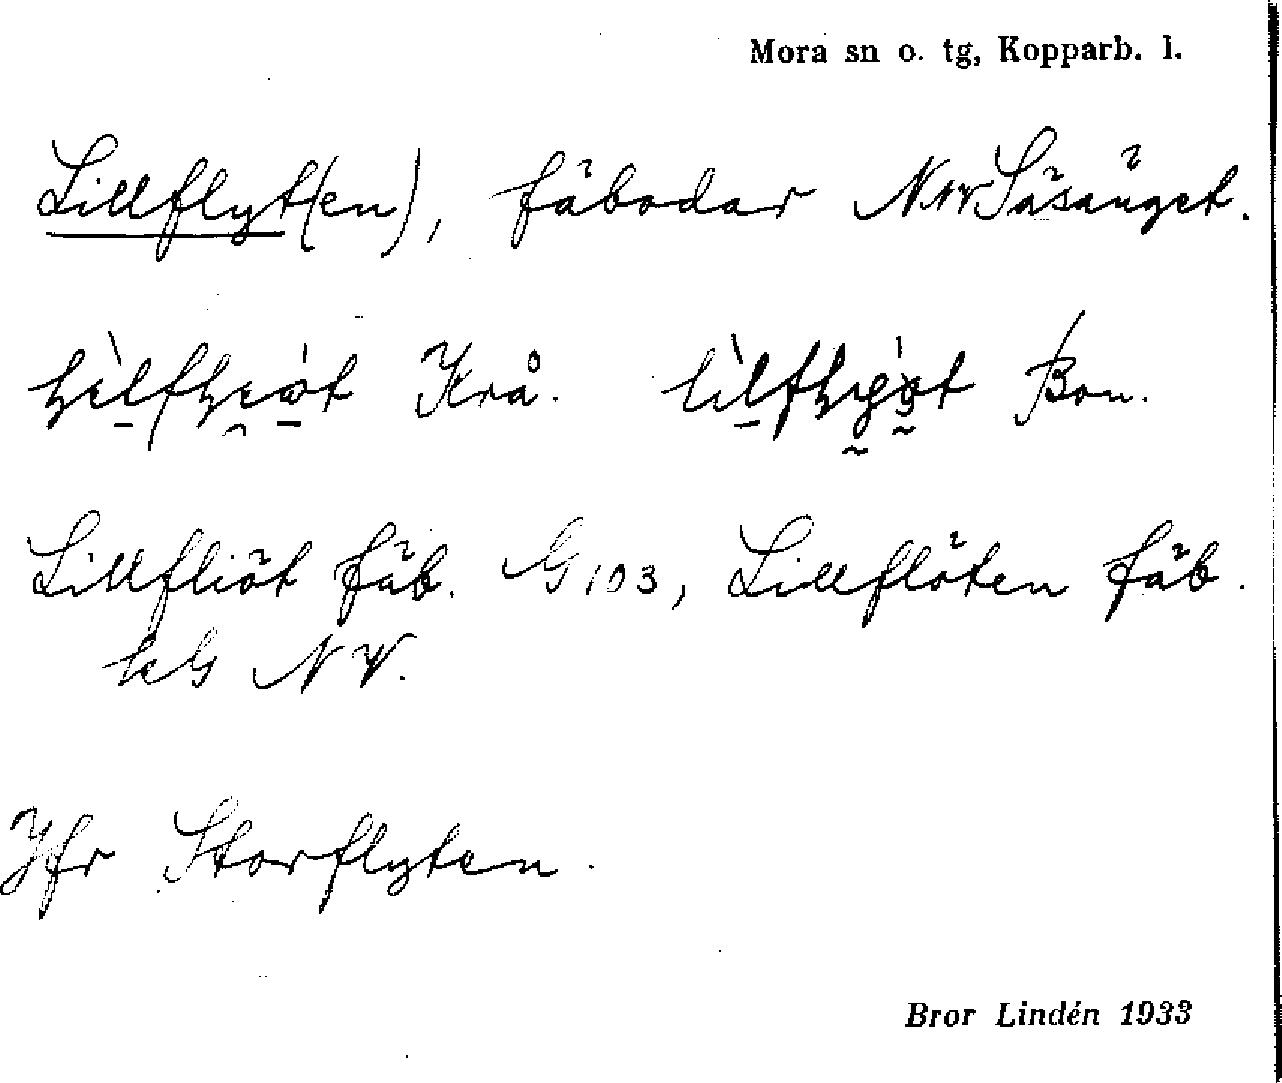 Mora sn o. tg, Kopparb. l.
Lillflyt(en), fäbodar NNV Säsänget.
Krå. Bon.
Lillfliöt fäb. G 103, Lillflöten fäb.
kG NV.
Jfr Storflyten.
Bror Lindén 1933